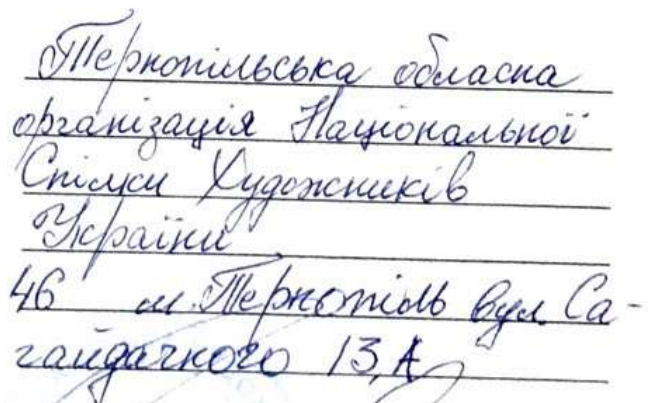 Тернопільська обласна
організація Національної
Спілки Художників
України
46 м.Тернопіль вул. Са-
гайдачного 13,А